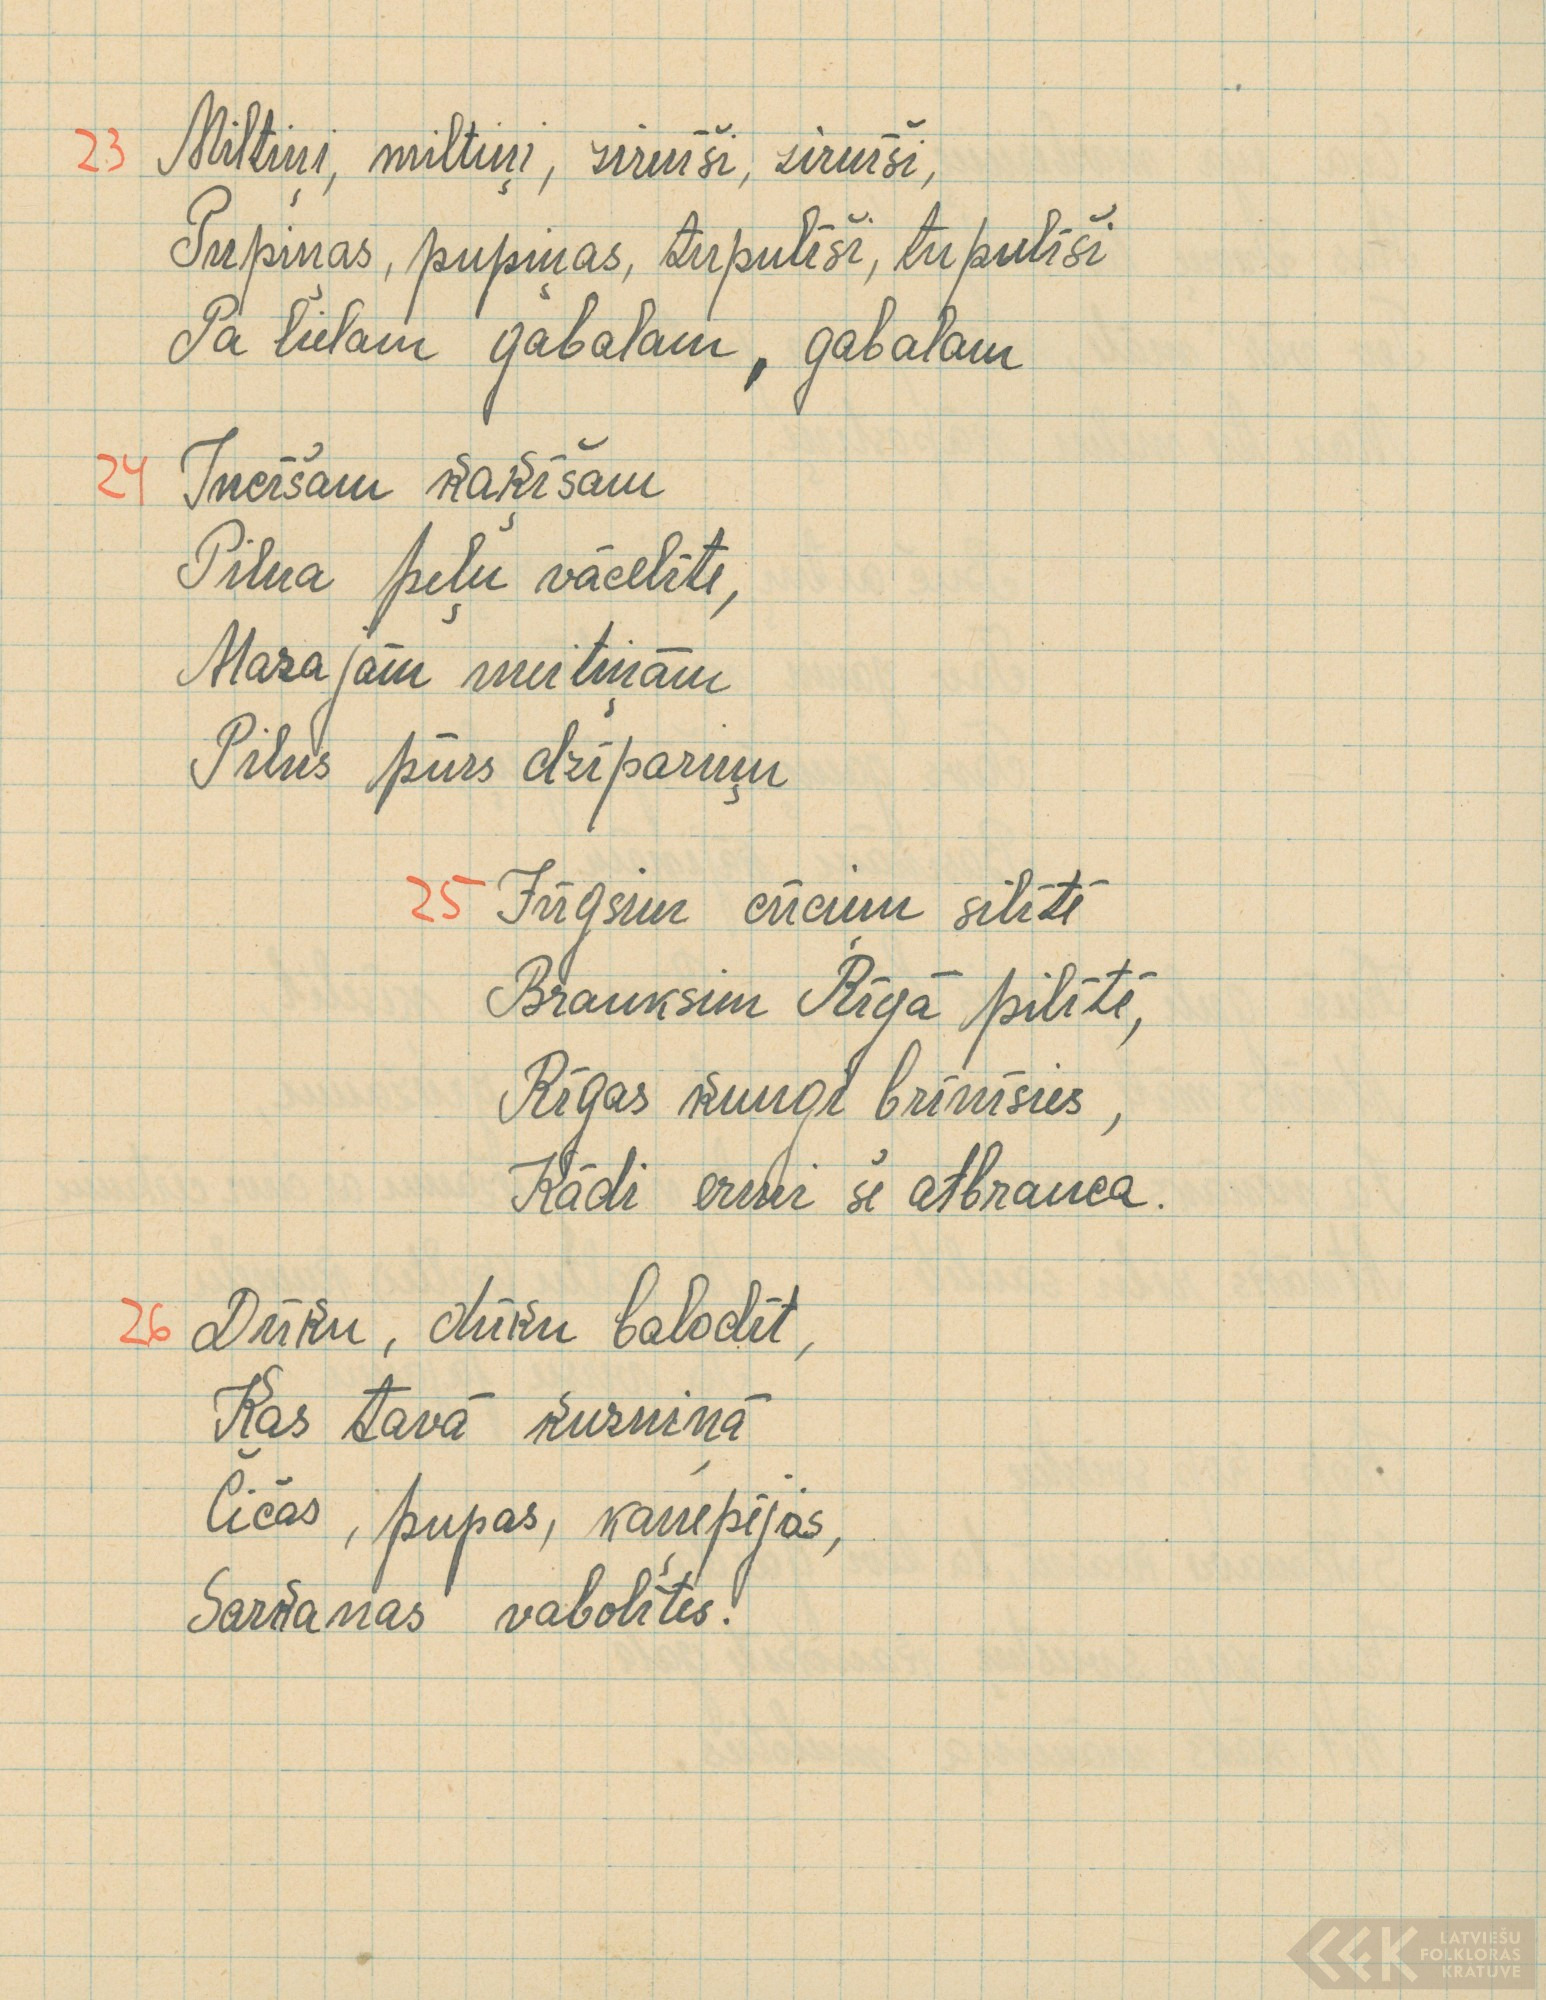 23 Miltiņi, miltiņi, zirnīši, zirnīši,
Pupiņas, pupiņas, tupulīši, tupulīši
Pa lielam gabalam, gabalam
24 Incīšam kaķīšam
Pilna peļu vācelīte,
Mazajām meitiņām
Pilns pūrs dzīpariņu
25 Jūgsim cūciņu silītē
Brauksim Rīgā pilītē,
Rīgas kungi brīnīsies,
Kādi ermi še atbrauca.
26 Dūku, dūku balodīt,
Kas tavā kuzniņā
Čičas, pupas, kaņepējas,
Sarkanas vabolītes.
LATVIEŠU
FOLKLORAS
KRATUVE